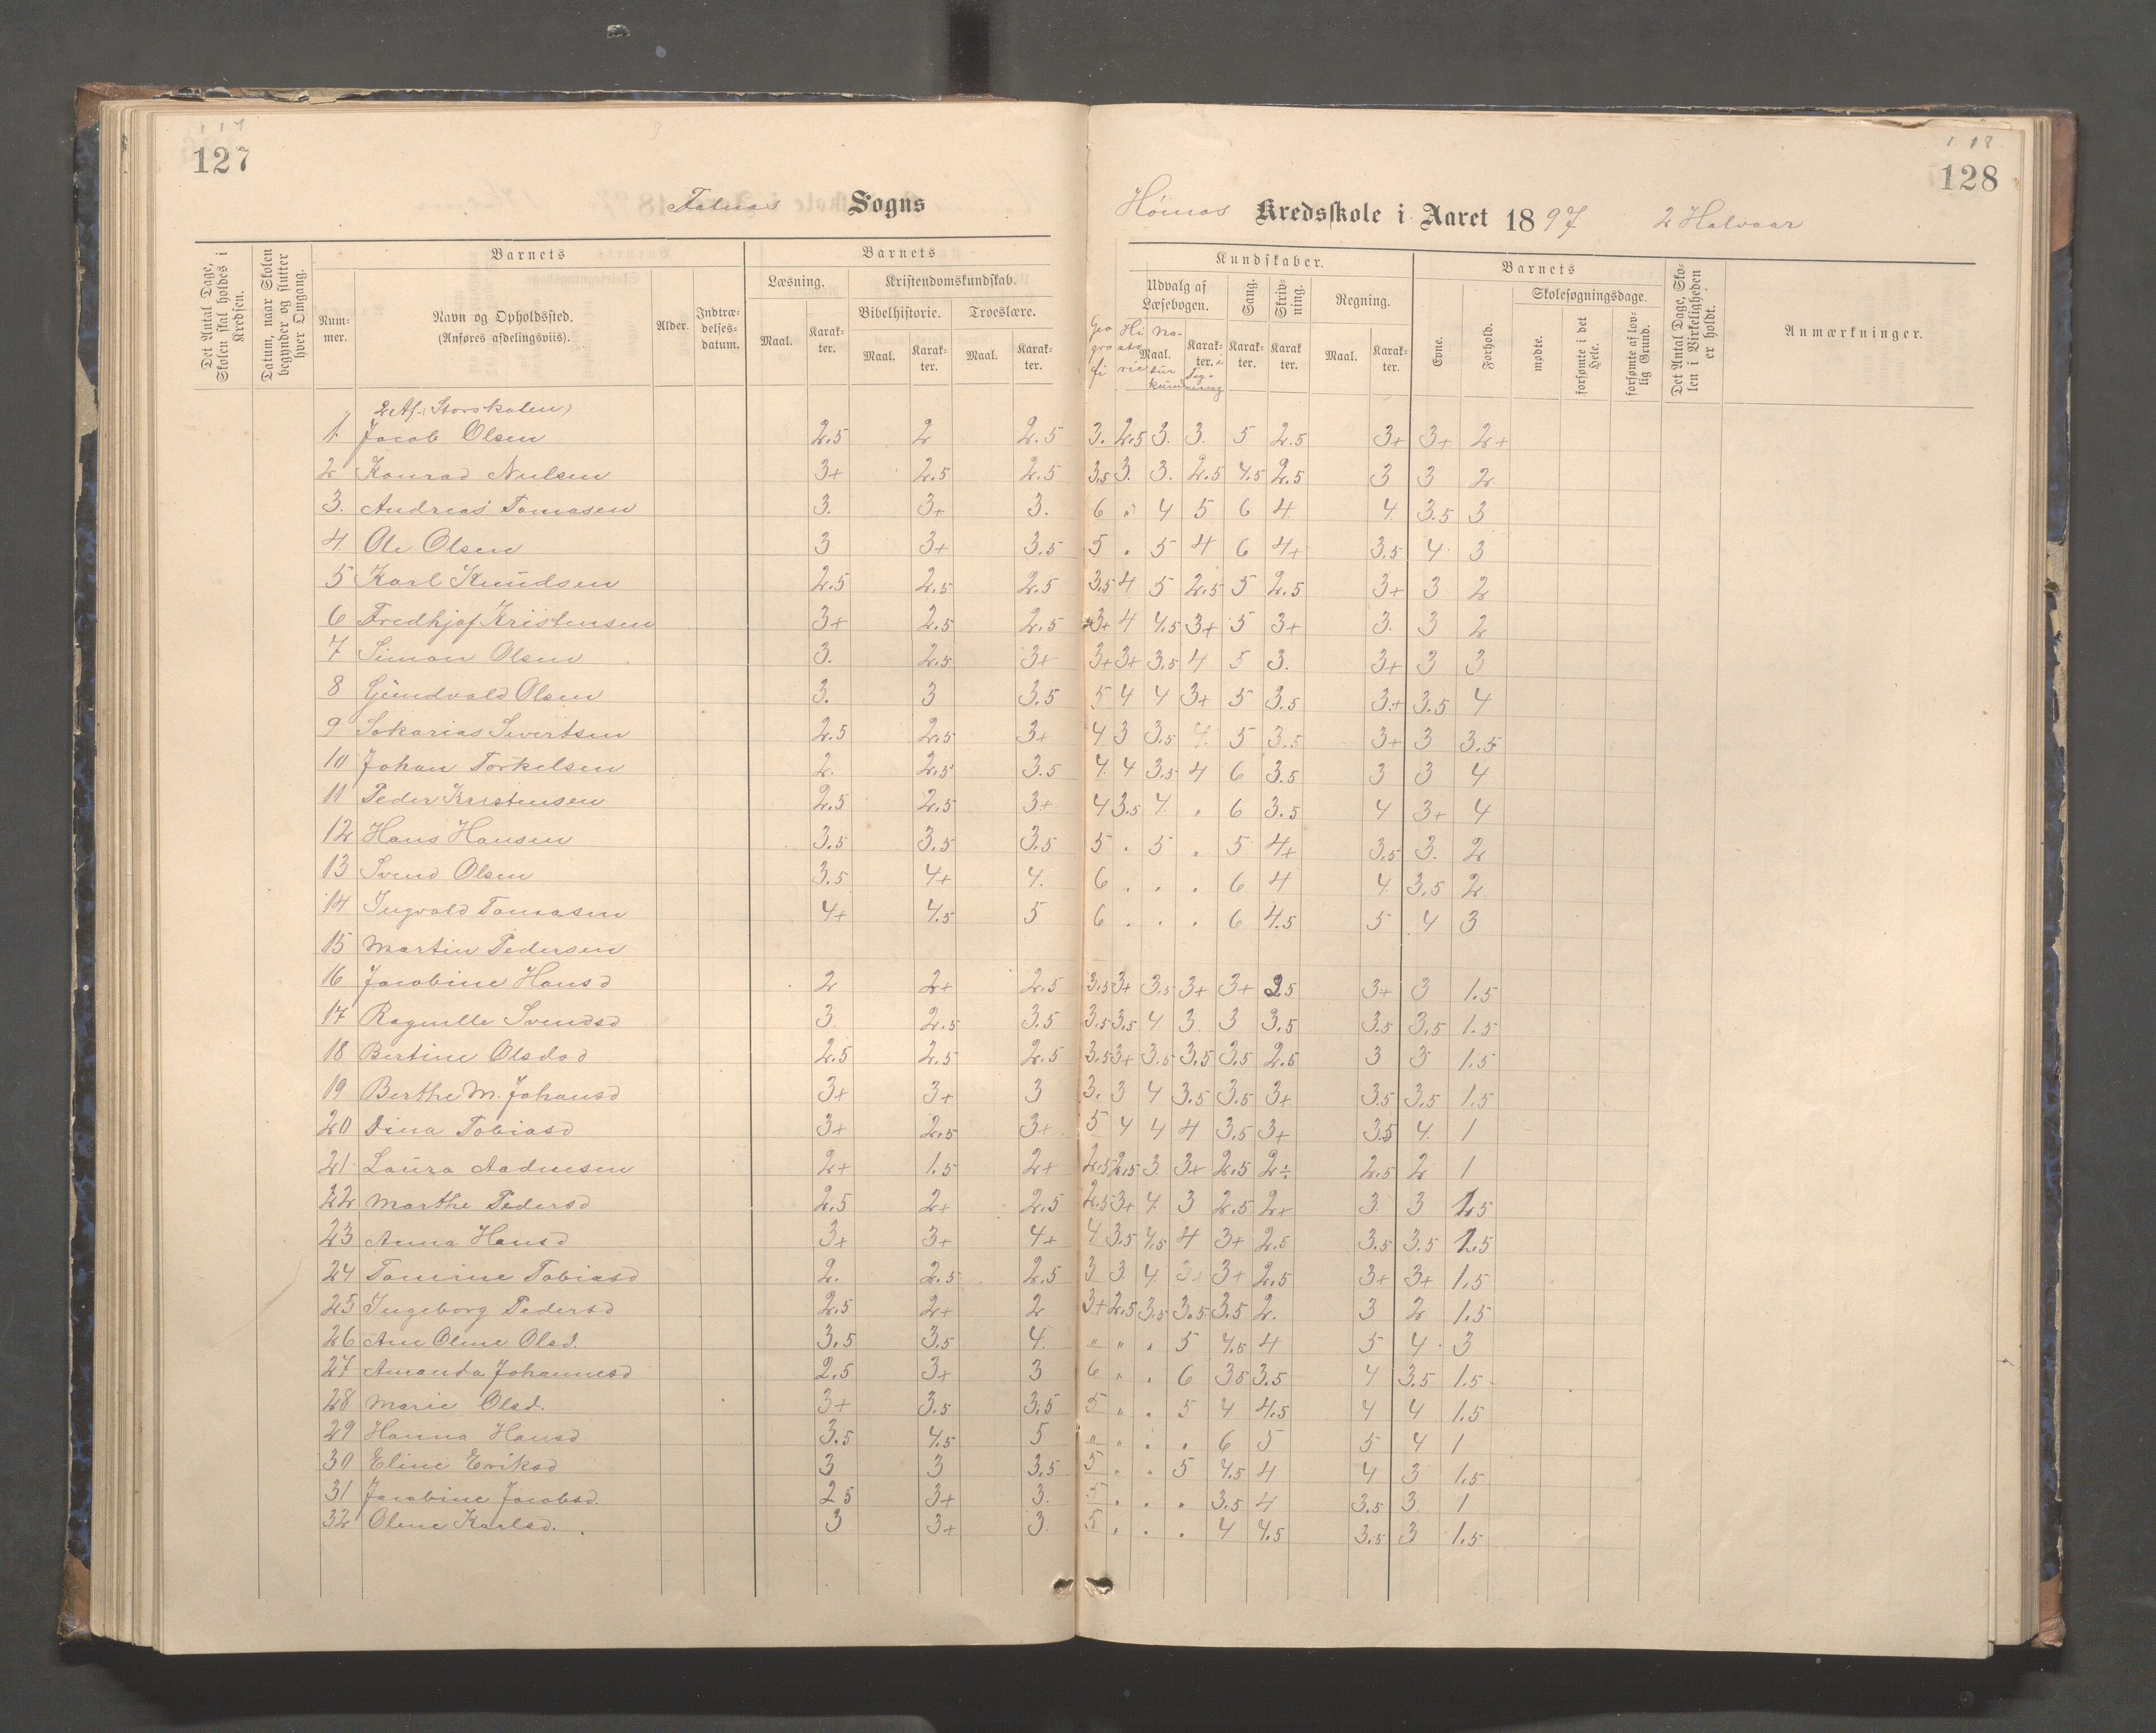 127
128
Falnes Sogns
Høines Kredsskole i Aaret 1897 2 Halvaar
Det Antal Dage, Skolen skal holdes i Kredsen.
Datum, naar Skolen begynder og slutter hver Omgang.
Barnets
Num-mer.
Navn og Opholdssted. (Anføres afdelingsviis).
Alder.
Indtræ-delses-datum.
Barnets
Læsning.
Maal.
Karak-ter.
Kristendomskundskab.
Bibelhistorie.
Maal.
Karak-ter.
Troeslære.
Maal.
Karak-ter.
Kundskaber.
Udvalg af Læsebogen.
Geo gra fi
Hi sto rie
Maal.
Na-tur kund
Karak-ter. i Teg-ning
Sang.
Karak-ter.
Skriv-ning.
Karak ter.
Regning.
Maal.
Karak-ter.
Barnets
Evne.
Forhold.
Skolesøgningsdage.
mødte.
forsømte i det Hele.
forsømte af lov-lig Grund.
Det Antal Dage, Sko-len i Virkeligheden er holdt.
Anmærkninger.
2 Af. Storskolen)
1. Jacob Olsen 2.5 2 2.5 3. 2.5 3. 3. 5 2.5 3+ 3+ 2+
2 Konrad Nielsen 3+ 2.5 2.5 3.5 3. 3. 2.5 4.5 2.5 3 3 2
3. Andreas Tomasen 3. 3+ 3. 6 " 4 5 6 4 4 3.5 3
4. Ole Olsen 3 3+ 3.5 5 . 5 4 6 4+ 3.5 4 3
5 Karl Knudsen 2.5 2.5 2.5 3.5 4 5 2.5 5 2.5 3+ 3 2
6 Fredhjof Kristensen 3+ 2.5 2.5 3+ 4 4.5 3+ 5 3+ 3. 3 2
7 Simon Olsen 3. 2.5 3+ 3+ 3+ 3.5 4 5 3. 3+ 3 3
8 Gundvald Olsen 3. 3 3.5 5 4 4 3+ 5 3.5 3+ 3.5 4
9 Sakarias Sivertsen 2.5 2.5 3+ 4 3 3.5 4. 5 3.5 3+ 3 3.5
10 Johan Torkelsen 2. 2.5 3.5 4. 4 3.5 4 6 3.5 3 3 4
11 Peder Kristensen 2.5 2.5 3+ 4 3.5 4. . 6 3.5 4 3+ 4
12 Hans Hansen 3.5 3.5 3.5 5 . 5 . 5 4+ 3.5 3. 2
13 Svend Olsen 3.5 4+ 4. 6 . . . 6 4 4 3.5 2
14 Ingvald Tomasen 4+ 4.5 5 6 . . . 6 4.5 5 4 3
15 Martin Pedersen
16 Jacobine Hansd 2 2+ 2.5 3.5 3+ 3.5 3+ 3+ 2.5 3+ 3 1.5
17 Ragnille Svendsd 3 2.5 3.5 3.5 3.5 4 3 3 3.5 3.5 3.5 1.5
18 Bertine Olsdod 2.5 2.5 2.5 3.5 3+ 3.5 3.5 3.5 2.5 3 3 1.5
19 Berthe M. Johansd 3+ 3+ 3 3. 3 4 3.5 3.5 3+ 3.5 3.5 1.5
20 Dina Tobiasd 3+ 2.5 3+ 5 4 4 4 3.5 3+ 3.5 4 1
21 Laura Aadnesen 2+ 1.5 2+ 2.5 2.5 3 3+ 2.5 2÷ 2.5 2 1
22 Marthe Pedersd 2.5 2+ 2.5 2.5 3+ 4. 3 2.5 2+ 3. 3 1.5
23 Anna Hansd 3+ 3+ 4+ 4 3.5 4.5 4 3+ 2.5 3.5 3.5 1.5
24 Tomine Tobiasd 2. 2.5 2.5 3 3 4 3+ 3+ 2.5 3+ 3+ 1.5
25 Ingeborg Pedersd 2.5 2+ 2 3+ 2.5 3.5 3.5 3.5 2. 3 2 1.5
26 Ane Oline Olsd. 3.5 3.5 4. " " . 5 4.5 4 5 4 3
27 Amanda Johannesd 2.5 3+ 3 6 " . 6 3.5 3.5 4 3.5 1.5
28 Marie Olsd. 3+ 3.5 3.5 5 " . 5 4 4.5 4 4 1.5
29 Hanna Hansd 3.5 4.5 5 " " . . 6 5 5 4 1
30 Eline Eriksd 3 3 3.5 5 " . 5 4.5 4 4 3 1.5
31 Jacobine Jacobsd. 2 5 3+ 3. 5 . . . 3.5 4 3.5 3 1
32 Oline Karlsd. 3 3+ 3. 5 . . . 4 4.5 3.5 3 1.5